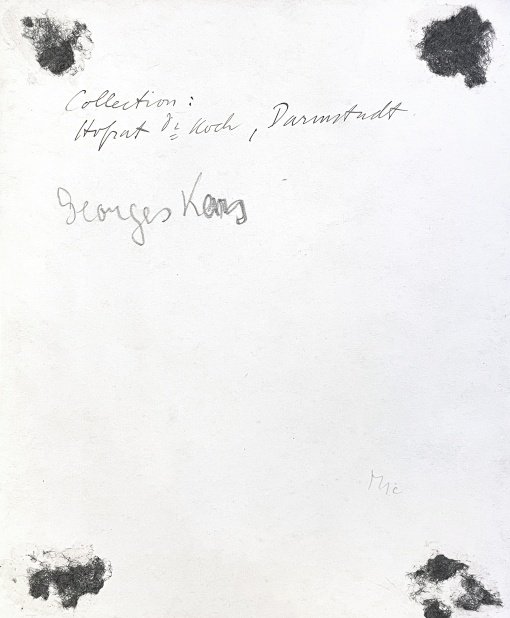 Collection:
Hofrat Dr Koch, Darmstadt.
Georges Kars